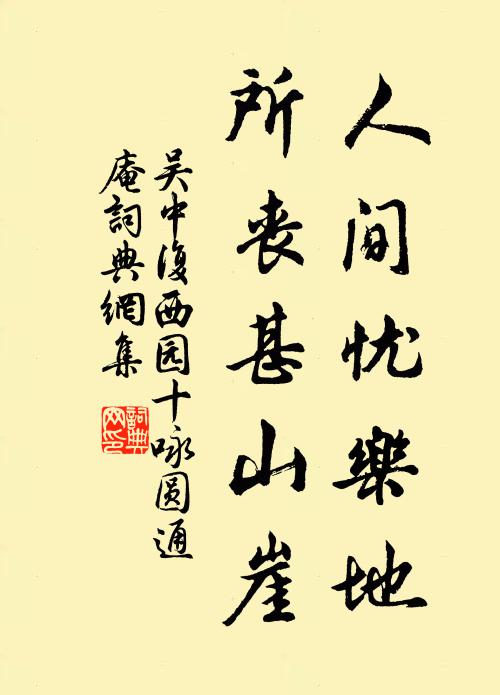 人间忧樂地
所丧甚山崖
吴中復西园十咏圆通
庵詞典網集
詞典网印